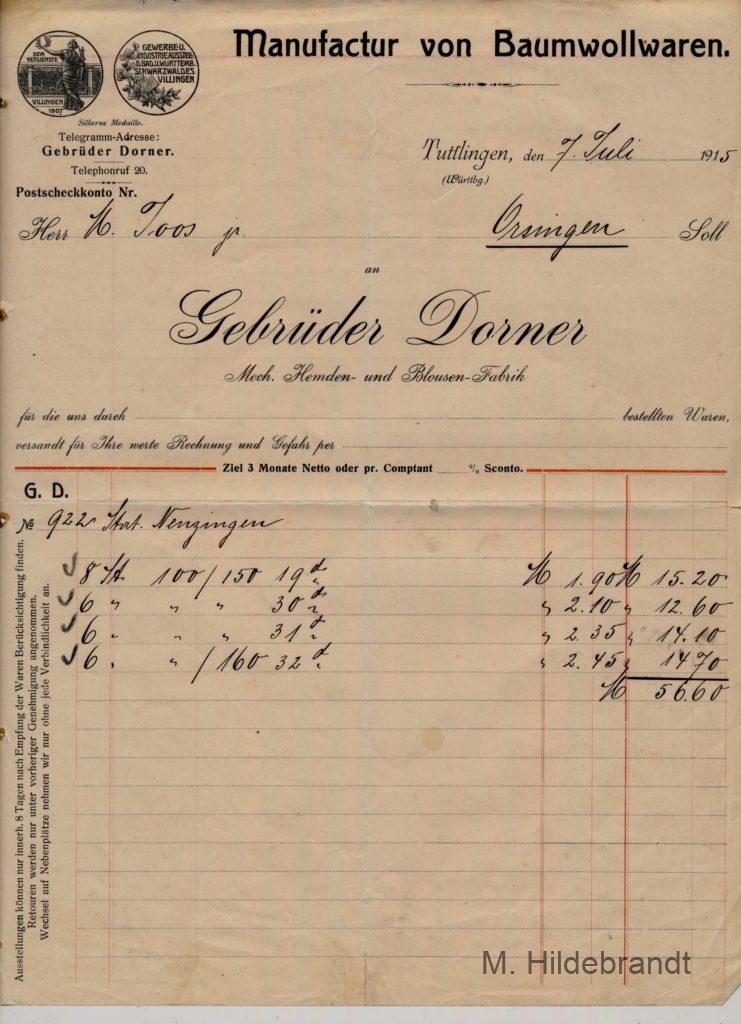 Manufactur von Baumwollwaren.
DEM VERDIENSTE
VILLINGEN
1907
GEWERBE- U.
INDUSTRIE-AUSSTEL.
D. BAD. U. WÜRTTEMB.
SCHWARZWALDES
VILLINGEN
Silberne Medaille.
Telegramm-Adresse:
Gebrüder Dorner.
Telephonruf 20.
Postscheckkonto Nr.
Tuttlingen, den 7. Juli 1915
(Württbg.)
Herr M. Joos jr. Orsingen Soll
an
Gebrüder Dorner
Mech. Hemden- und Blousen-Fabrik
für die uns durch bestellten Waren,
versandt für Ihre werte Rechnung und Gefahr per
Ziel 3 Monate Netto oder pr. Comptant % Sconto.
G. D.
No 922 Stat. Nenzingen
8 St. 100/150 19 d " M 1.90 M 15.20
6 " " " 30 d " " 2.10 " 12.60
6 " " " 31 d " " 2.35 " 14.10
6 " " /160 32 d " " 2.45 " 14.70
M 56.60
Ausstellungen können nur innerh. 8 Tagen nach Empfang der Waren Berücksichtigung finden.
Retouren werden nur unter vorheriger Genehmigung angenommen.
Wechsel auf Nebenplätze nehmen wir nur ohne jede Verbindlichkeit an.
M. Hildebrandt